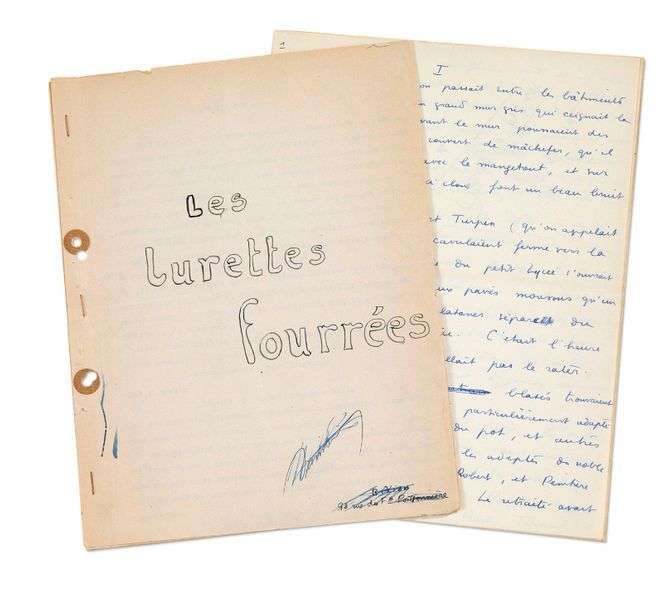 Les
Lurettes
fourrées
93 rue du Fg Poissonnière
1
I
on passait entre les bâtiments
grand mur gris qui ceignait la
vant le mur poussaient des
couvert de mâchefer, qu'il
avec le mangetout, et sur
à clous font un beau bruit
et Turpin (qu'on appelait
cavalaient ferme vers la
du petit Lycée s'ouvrait
pavés moussus qu'un
platanes séparait du
C'était l'heure
llait pas le rater.
blasés trouvaient
particulièrement adapté
du pot, et autres
les adeptes du noble
Robert, et
Le retraité avant